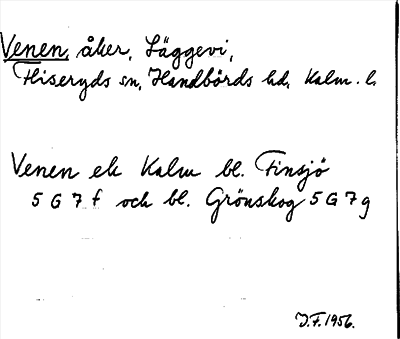 Venen, åker, Läggevi,
Fliseryds sn, Handbörds hd, Kalm. l.
Venen ek Kalm bl. Finsjö
5 G 7 f och bl. Grönskog 5 G 7 g
J.F. 1956.